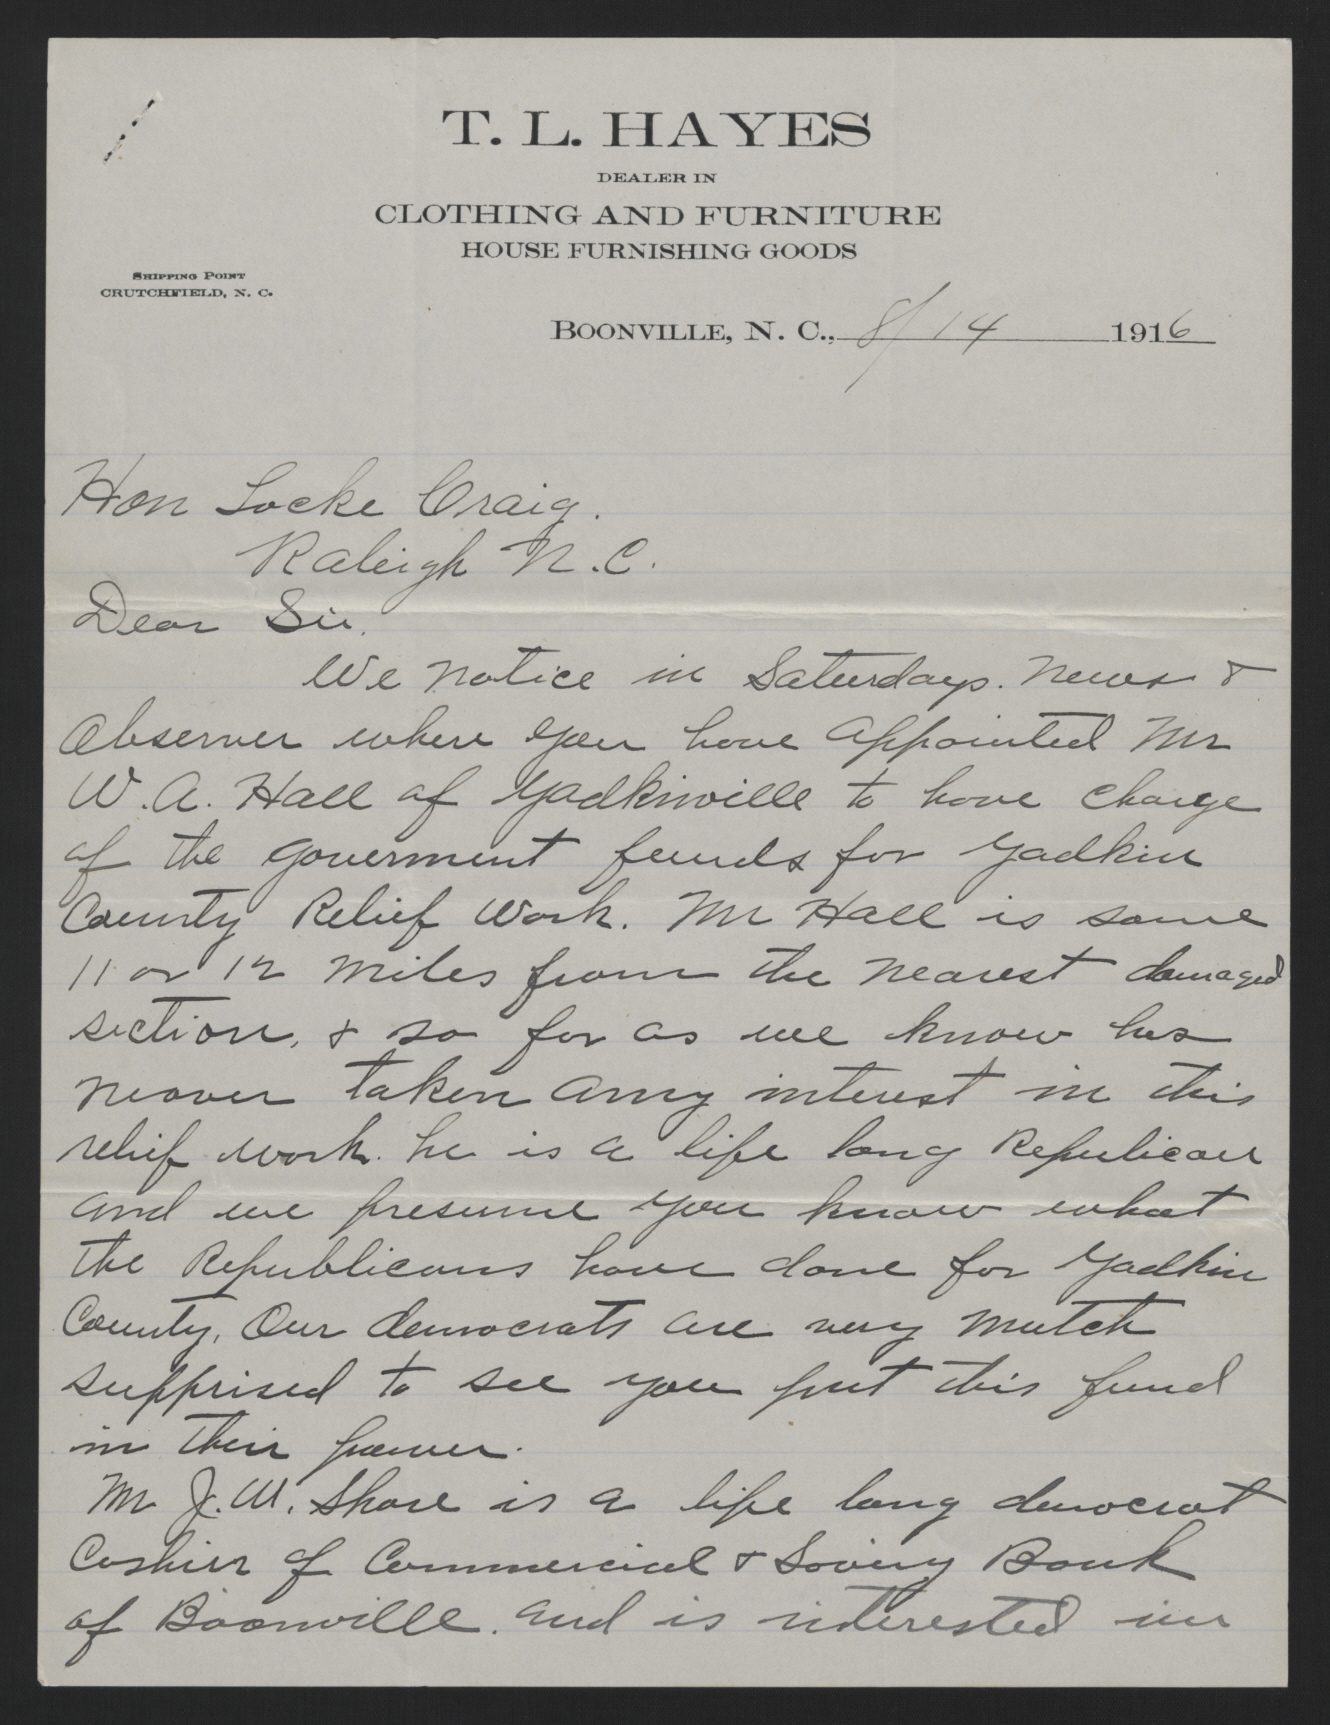 T. L. HAYES
DEALER IN
CLOTHING AND FURNITURE
HOUSE FURNISHING GOODS
SHIPPING POINT
CRUTCHFIELD, N. C.
BOONVILLE, N. C., 8/14 1916
Hon Locke Craig.
Raleigh N.C.
Dear Sir.
We notice in Saturdays. News &
Observer where you have appointed Mr
W.A. Hall of Yadkinville to have charge
of the Goverment funds for Yadkin
County Relief Work. Mr Hall is some
11 or 12 miles from the nearest damaged
section, & so far as we know has
neaver taken any interest in this
relief work. he is a life long Republican
and we presume you know what
the Republicans have done for Yadkin
County, Our democrats are very mutch
supprised to see you put this fund
in their power.
Mr J.W. Shore is a life long democrat
Cashier of Commercial & Saving Bank
of Boonville. and is interested in